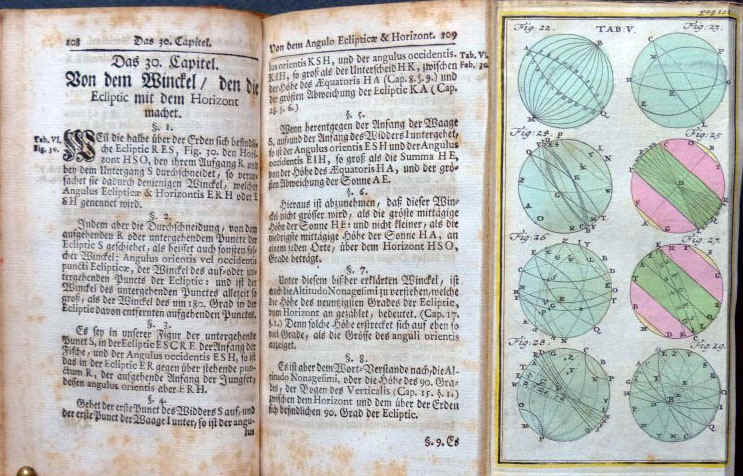 108 Das 30. Capitel.
Das 30. Capitel.
Von dem Winckel / den die
Ecliptic mit dem Horizont
machet.
§. 1.
Tab. VI.
Fig. 30.
WEil die halbe über der Erden sich befindli-
che Ecliptic RES, Fig. 30. den Hori-
zont HSO, den ihrem Aufgang R. und
bey dem Untergang S durchschneidet, so verur-
sachet sie dadurch denjenigen Winckel, welcher
Angulus Eclipticæ & Horizontis ERH oder E
SH genennet wird.
§. 2.
Indem aber die Durchschneidung, von dem
aufgehenden R oder untergehendem Puncte der
Ecliptic S geschiehet, als heisset auch sonsten sol-
cher Winckel; Angulus orientis vel occidentis
puncti Eclipticæ, der Winckel des auf-oder un-
tergehenden Puncts der Ecliptic: und ist der
Winckel des untergehenden Puncts allezeit so
groß, als der Winckel des um 180. Grad in der
Ecliptic davon entfernten aufgehenden Puncts.
§. 3.
Es sey in unserer Figur der untergehende
Punct S, in der Ecliptic ESCRE der Anfang der
Fische, und der Angulus occidentis ESH, so ist
das in der Ecliptic ER gegen über stehende pun-
ctum R, der aufgehende Anfang der Jungfer,
dessen angulus orientis aber ERH.
§. 4.
Gehet der erste Punct des Widders S auf, und
der erste Punct der Waage I unter, so ist der angu-
lus
Von dem Angulo Eclipticæ & Horizont. 109
lus orientis KSH, und der angulus occidentis.
Tab. VI.
Fig. 30.
KIH, so groß als der Unterscheid HK, zwischen
der Höhe des Æquatoris HA (Cap. 8. §. 9.) und
der grösten Abweichung der Ecliptic KA (Cap.
§. 6.)
§. 5.
Wenn herentgegen der Anfang der Waage
S, auf und der Anfang des Widders I untergehet,
so ist der Angulus orientis ESH und der Angulus
occidentis EIH, so groß als die Summa HE,
von der Höhe des Æquatoris HA, und der grö-
sten Abweichung der Sonne AE.
§. 6.
Hieraus ist abzunehmen, daß dieser Win-
ckel nicht grösser wird, als die gröste mittägige
Höhe der Sonne HE: und nicht kleiner, als die
niedrigste mittägige Höhe der Sonne HA, an
einem jeden Orte, über dem Horizont HSO,
Grade beträgt.
§. 7.
Unter diesem bißher erklärten Winckel, ist
auch die Altitudo Nonagesimi zu verstehen, welche
die Höhe des neuntzigsten Grades der Ecliptic,
vom Horizont an gezählet, bedeutet. (Cap. 17.
§. 1.) Denn solche Höhe erstrecket sich auf eben so
viel Grade, als die Grösse des anguli orientis
anzeiget.
§. 8.
Es ist aber dem Wort-Verstande nach, die Al-
titudo Nonagesimi, oder die Höhe des 90. Gra-
des, der Bogen des Verticalis (Cap. 15. §. 1.)
zwischen dem Horizont und dem über der Erden
sich befindlichen 90. Grad der Ecliptic.
§. 9. Es
TAB. V.
Fig. 22.
Fig. 23.
Fig. 24.
Fig. 25
Fig. 26
Fig. 27.
Fig. 28.
Fig. 29.